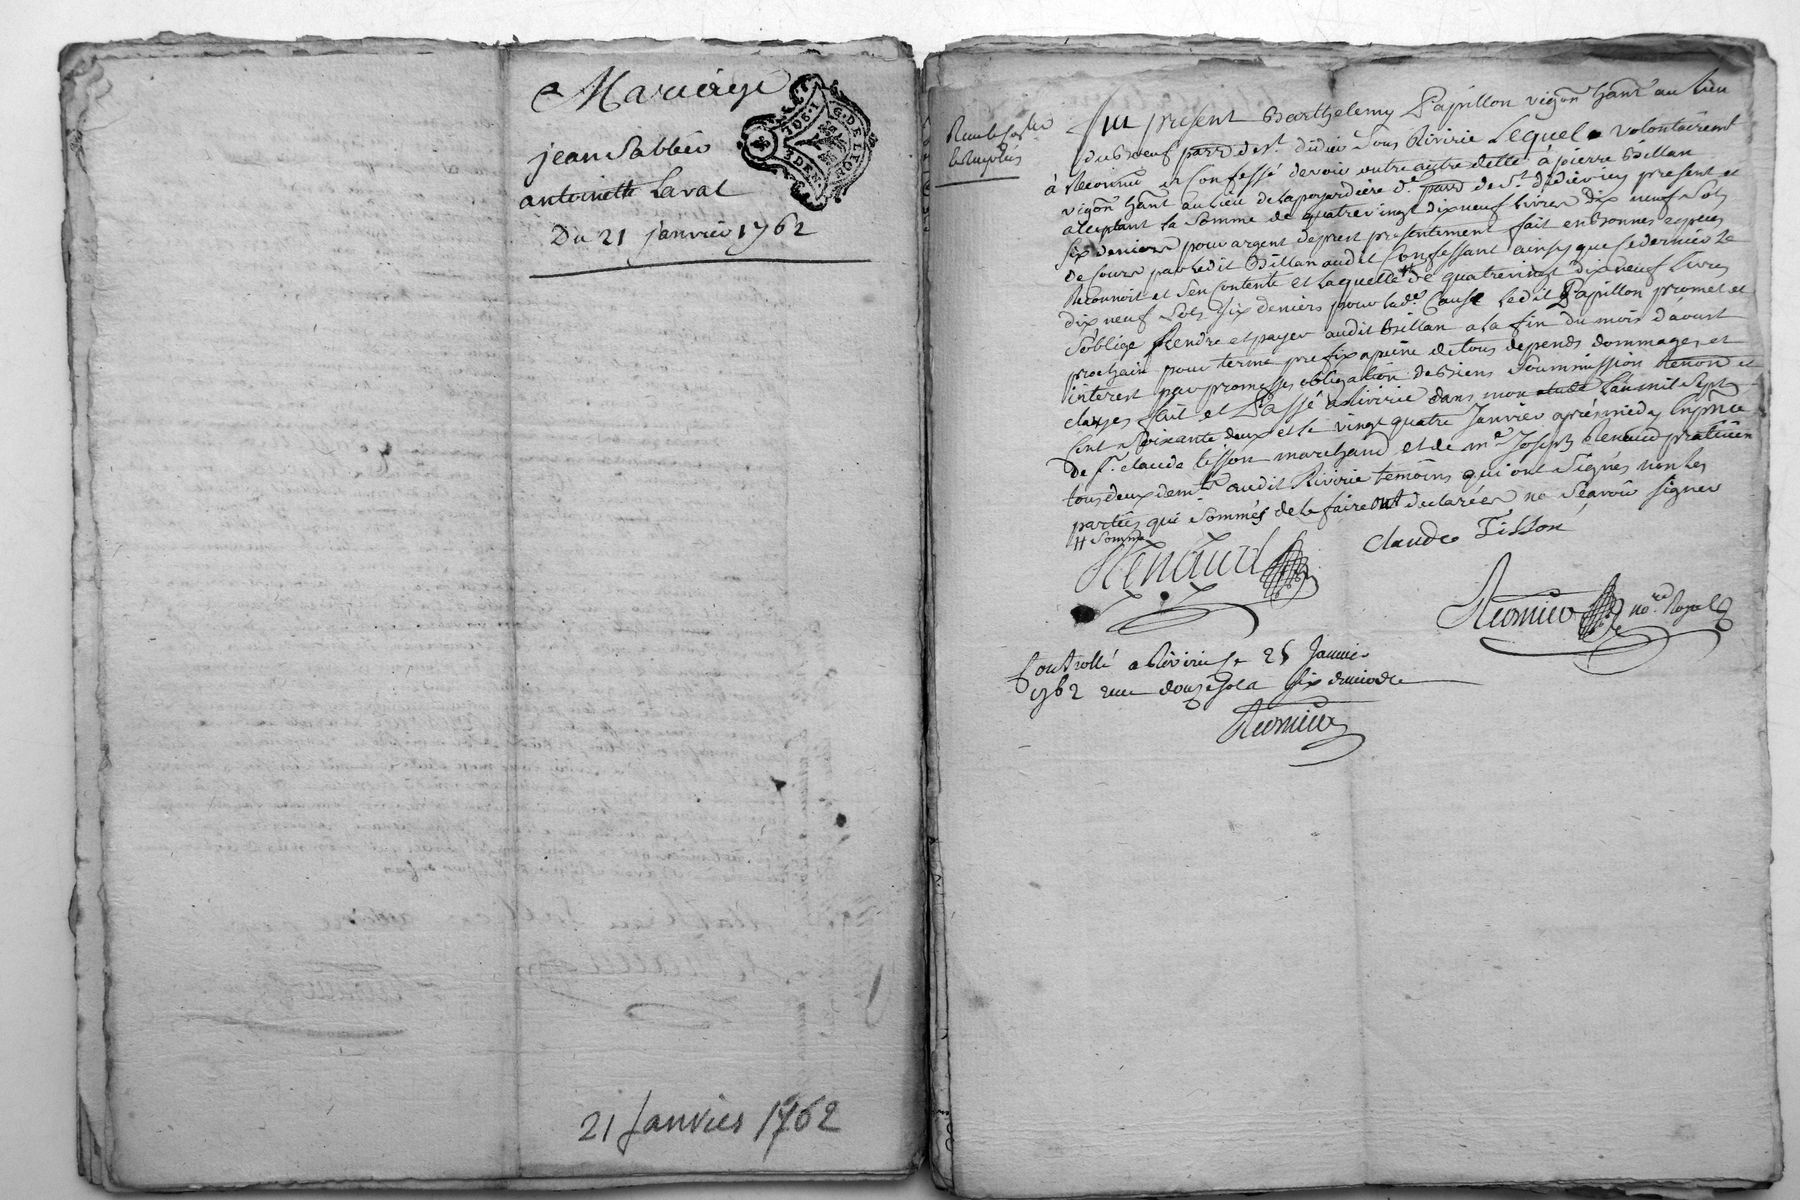 Mariage
jean Sablier
antoinette Laval
Du 21 janvier 1762
G. DE LYON
3 DEN.
21 Janvier 1762
Fut présent Barthelemy Papillon vigñon habt. au lieu
du Boeuf parr. de st. didier sous Riviriè Lequel volontairemt
à Reconnu et Confessé devoir outre autre dette à pierre Billan
vigñon habt. au lieu de lapoyardière de. parr. de st. didier icy présent et
aceptant la Somme de quatrevingt dixneuf livres dix neuf Sols
Six deniers pour argent de prest présentement fait en Bonnes espèces
de Cours par ledit Billan audit Confessant ainsy que ce dernier Le
Reconnoit et s'en Contente et laquelle # de quatrevingt dix neuf Livres
dix neuf Sols Six deniers pour lade. Cause Ledit Papillon promet et
s'oblige Rendre et payer audit Billan a la fin du mois d'aoust
prochain pour terme prefix apeine de tous depends dommages et
interest par promesses obligation de Biens Soummission Renon et
clauses fait et Passé a Riviriè dans mon etude L'an mil Sept
Cent Soixante deux et le vingt quatre Janvier après midy En pñce
De sr. claude tisson marchand et de me. Joseph Renaud praticien
tous deux demts. audit Riviriè temoins qui ont Signés non les
parties qui Sommés de le faire ont declarées ne Sçavoir signer
# Somme
Claude Tisson
Renaud
no.re Royal
Controllé a Riviriè le 25 Janvier
1762 reçu douze sols six deniers